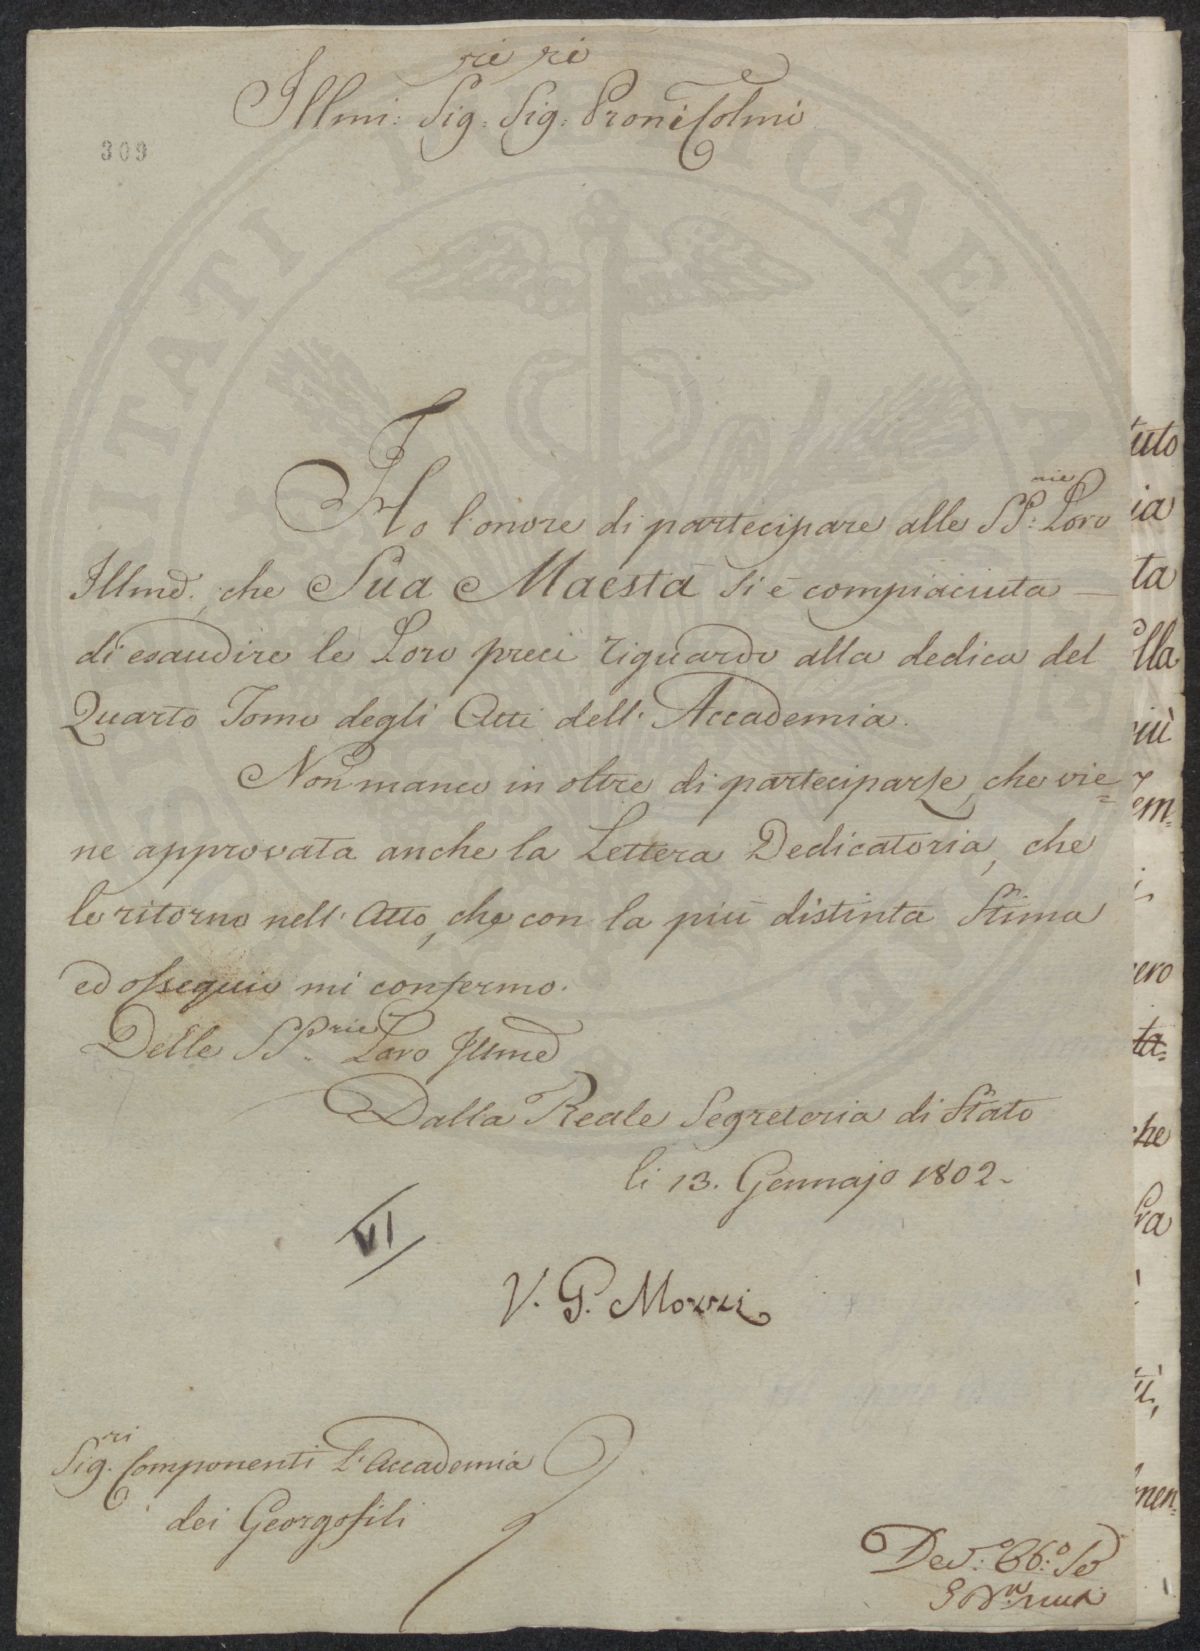 Illmi: Sig:ri Sig:ri Proni Colmi
309
Ho l'onore di partecipare alle SS:rie Loro
Illme, che Sua Maestà si è compiaciuta
di esaudire le Loro preci riguardo alla dedica del
Quarto Tomo degli Atti dell' Accademia.
Non manco in oltre di parteciparle, che vie=
ne approvata anche la Lettera Dedicatoria, che
le ritorno nell' Atto, che con la più distinta stima
ed ossequio mi confermo.
Delle SS:rie Loro Illme
Dalla Reale Segreteria di Stato
li 13. Gennajo 1802.
VI
V. G. Mozzi
Sig:ri Componenti L'Accademia
dei Georgofili
Dev:o Ob:o